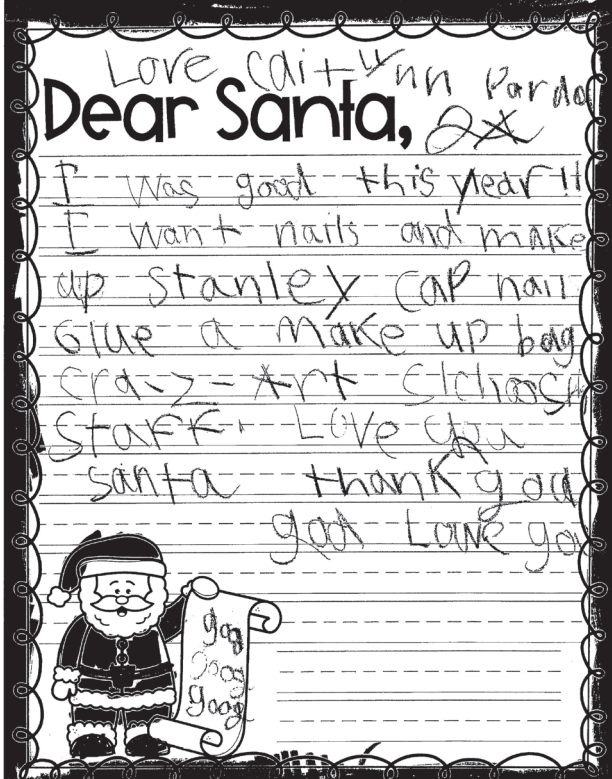 Love Caitlynn Pardo
Dear Santa,
I was good this year!!
I want nails and make
up Stanley cap nail
Glue a make up bag
cra-z-Art
Staff. Love you
santa thank god
god Love yo
goo
good
good